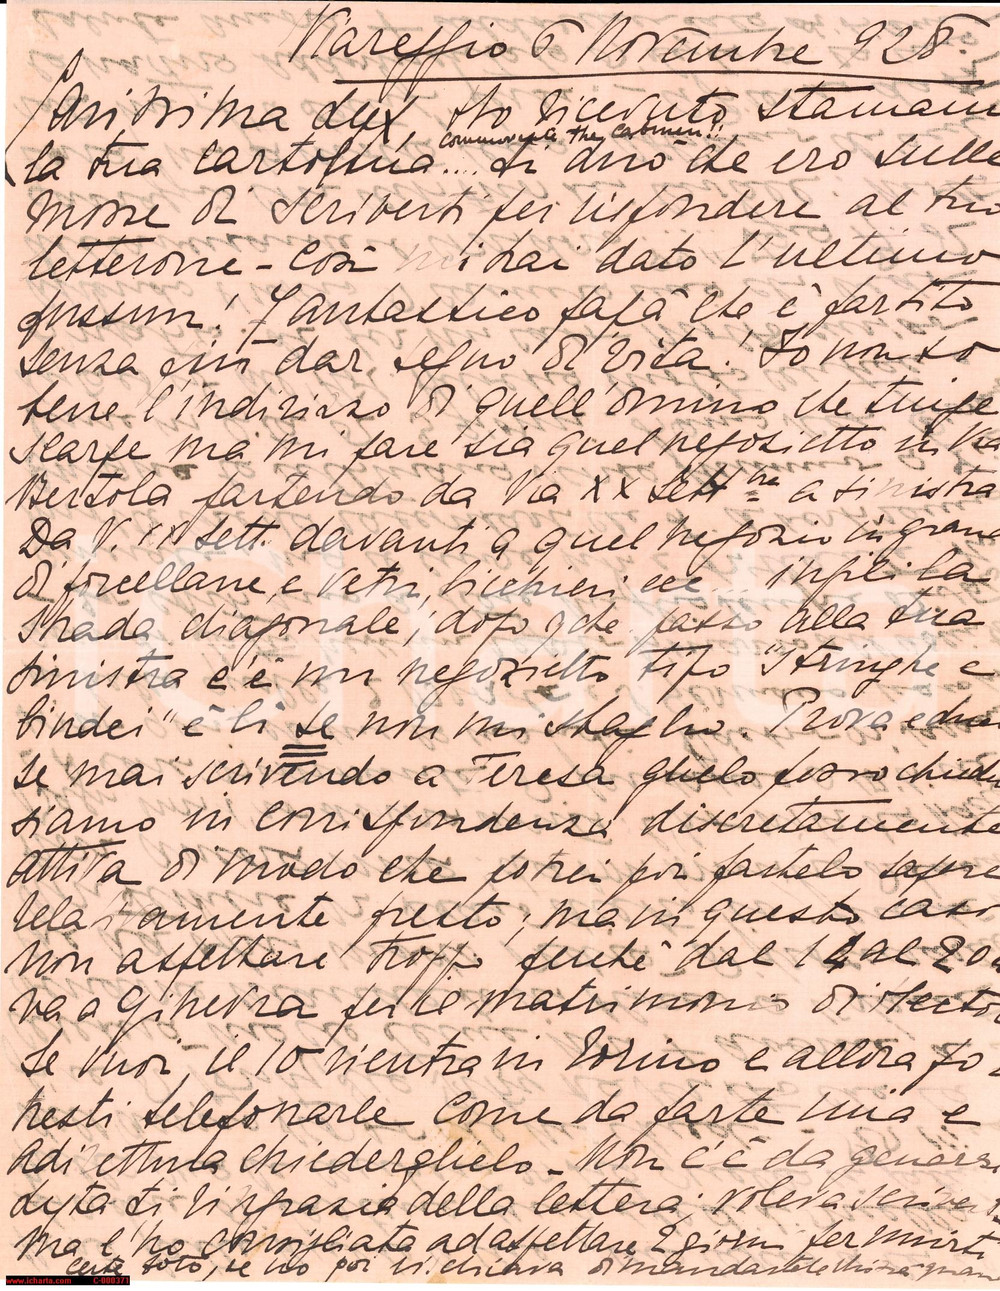 Viareggio 6 Novembre 928
Carissima Lux, Ho ricevuto stamani
commoving the carmen!!
la tua cartolina.... Ti dirò che ero sulle
mosse di scriverti per rispondere al tuo
letterone - Così mi hai dato l'ultimo
pussun! Fantastico papà che è partito
senza più dar segno di vita! Io non so
bene l'indirizzo di quell'omino che tinge
scarpe ma mi pare sia quel negozietto in Via
Bertola partendo da Via XX Settbre a sinistra
Da V. XX Sett. davanti a quel negozio in grande
di porcellane e vetri, bicchieri ecc... infili la
strada diagonale; dopo qche passo alla tua
sinistra c'è un negozietto tipo "stringhe e
bindei" è lì se non mi sbaglio. Prova e
se mai scrivendo a Teresa glielo posso chiedere
siamo in corrispondenza discretamente
attiva di modo che potrei poi fartelo sapere
relativamente presto; ma in questo caso
non aspettare troppo perchè dal 12 al 20
va a Ginevra per il matrimonio di
Se vuoi, il 10 rientra in Torino e allora po-
tresti telefonarle come da parte mia e
addirittura chiederglielo - Non c'è da
ti ringrazia della lettera; voleva scriver
ma l'ho consigliata ad aspettare 2 giorni per
certa, se no poi
www.icharta.com C-000371
iCharta